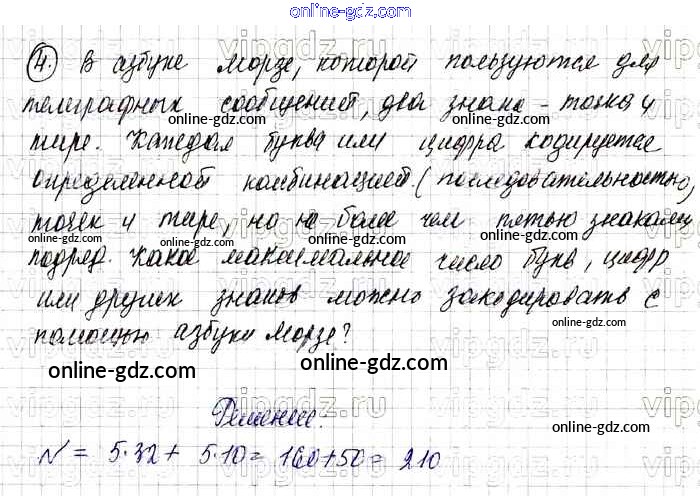 online-gdz.com
4. В азбуке Морзе, которой пользуются для
телеграфных сообщений, два знака – точка и
тире. Каждая буква или цифра кодируется
определенной комбинацией (последовательностью)
точек и тире, но не более чем пятью знаками
подряд. Какое максимальное число букв, цифр
или других знаков можно закодировать с
помощью азбуки Морзе?
Решение:
N = 5·32 + 5·10 = 160+50 = 210
vipgdz.ru
online-gdz.com
online-gdz.com
online-gdz.com
online-gdz.com
online-gdz.com
online-gdz.com
online-gdz.com
online-gdz.com
online-gdz.com
online-gdz.com
online-gdz.com
online-gdz.com